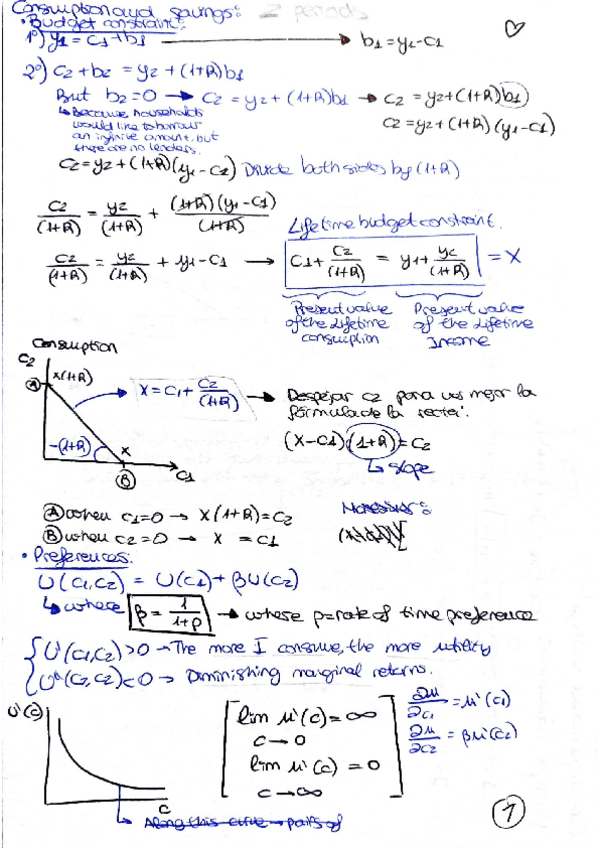 Consumption and savings: 2 periods
• Budget constraint:
1º) y1 = c1+b1 → b1 = y1-c1
2º) c2 + b2 = y2 + (1+R)b1
But b2=0 → c2 = y2 + (1+R)b1 → c2 = y2+(1+R)b1
↳ Because households
would like to borrow
an infinite amount, but
there are no lenders.
c2 = y2+(1+R)(y1-c1)
c2 = y2 + (1+R)(y1-c1) Divide both sides by (1+R)
c2/(1+R) = y2/(1+R) + (1+R)(y1-c1)/(1+R)
Lifetime budget constraint.
c2/(1+R) = y2/(1+R) + y1-c1 → c1+ c2/(1+R) = y1+ y2/(1+R) = X
Present value
of the lifetime
consumption
Present value
of the lifetime
Income
Consumption
c2
A x(1+R)
X = c1+ c2/(1+R) → Despejar c2 para ver mejor la
fórmula de la recta:
-(1+R)
x
B
c1
(X-c1)(1+R)=c2
↳ slope
A when c1=0 → x(1+R)=c2
B when c2=0 → x = c1
• Preferences:
U(c1,c2) = U(c1)+ βU(c2)
↳ where β = 1/1+ρ → where ρ=rate of time preference
U'(c1,c2)>0 → The more I consume, the more utility
U''(c1,c2)<0 → Diminishing marginal returns.
U'(c)
c
lim u'(c)=∞
c→0
lim u'(c) = 0
c→∞
∂u/∂c1 = u'(c1)
∂u/∂c2 = βu'(c2)
↳ Along this curve → pairs of
1